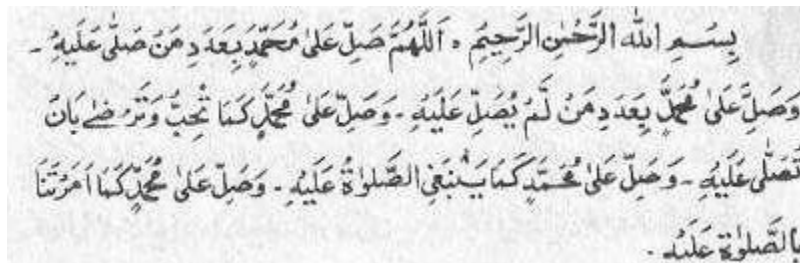 بِسْمِ اللهِ الرَّحْمٰنِ الرَّحِيْمِ ہ اَللّٰهُمَّ صَلِّ عَلٰى مُحَمَّدٍ بِعَدَدِ مَنْ صَلّٰى عَلَيْهِ ـ
وَصَلِّ عَلٰى مُحَمَّدٍ بِعَدَدِ مَنْ لَّمْ يُصَلِّ عَلَيْهِ ـ وَصَلِّ عَلٰى مُحَمَّدٍ كَمَا تُحِبُّ وَتَرْضٰے بَانْ
تُصَلّٰى عَلَيْهِ ـ وَصَلِّ عَلٰى مُحَمَّدٍ كَمَا يَنْۢبَغِى الصَّلٰوةُ عَلَيْهِ ـ وَصَلِّ عَلٰى مُحَمَّدٍ كَمَا اَمَرْتَنَا
بِالصَّلٰوةِ عَلَيْهِ ـ